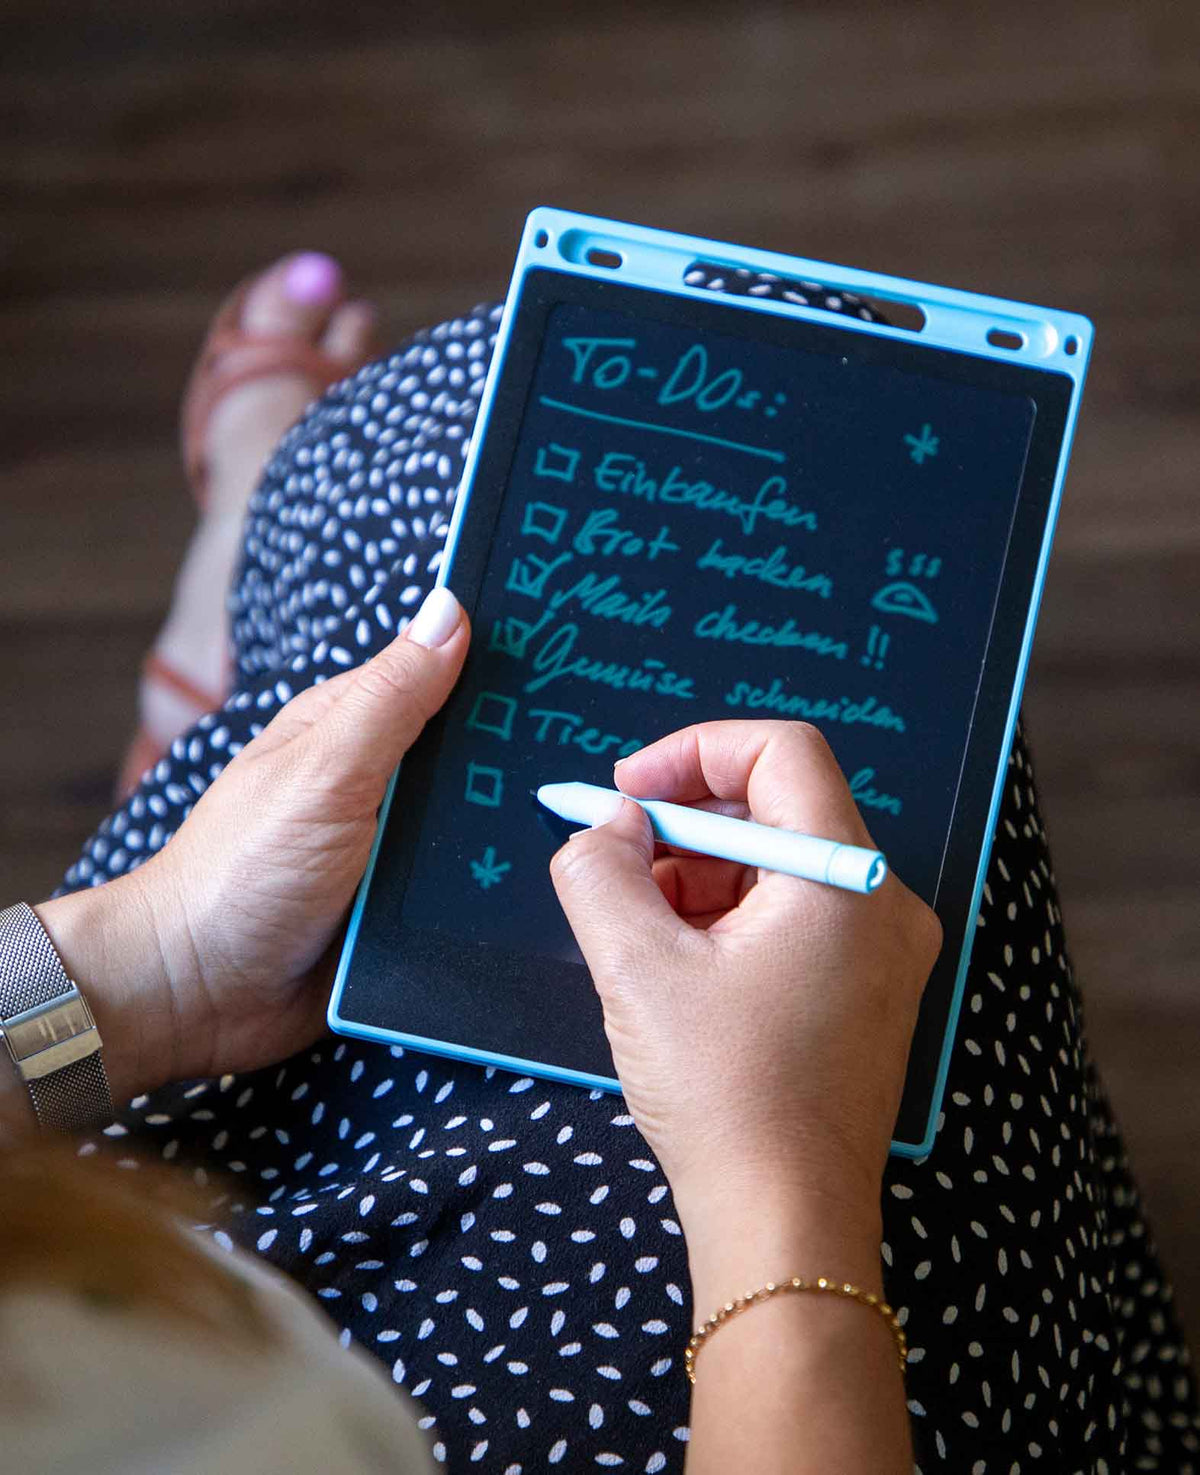 To-DOs:
Einkaufen
Brot backen
Mails checken !!
Gemüse schneiden